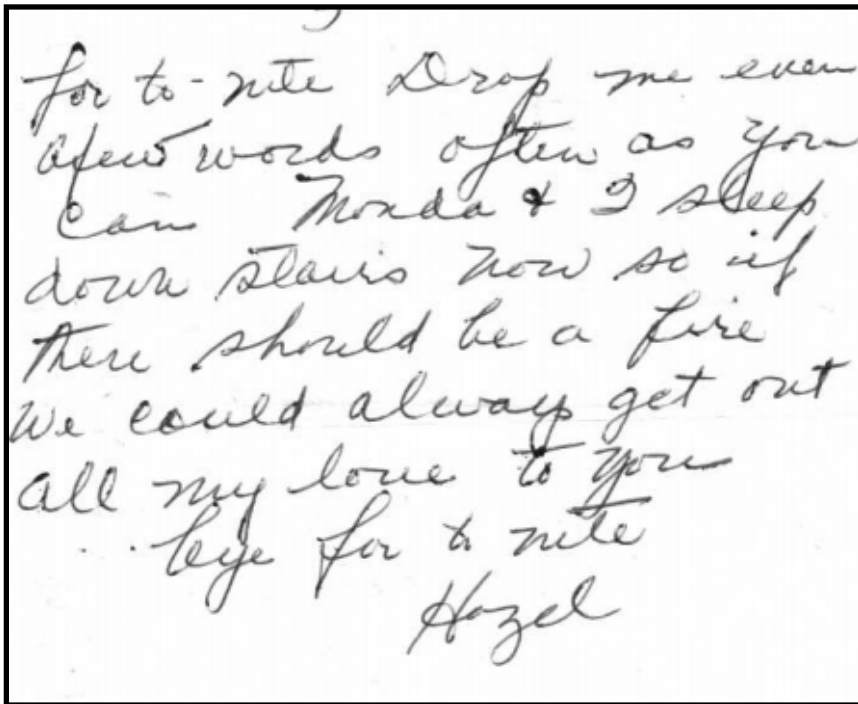 for to-nite Drop me even
a few words often as you
can Monda & I sleep
down stairs now so if
there should be a fire
We could always get out
all my love to you
bye for to nite
Hazel